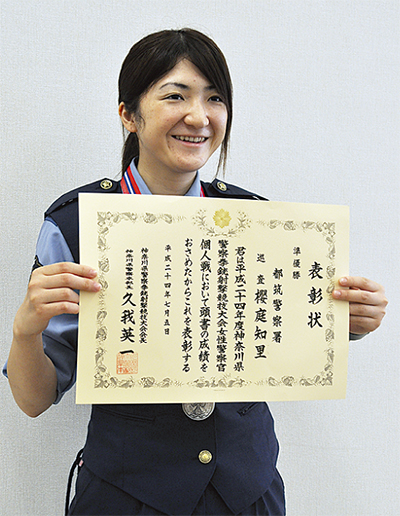 表彰状
準優勝
都筑警察署
巡査 櫻庭知里
君は平成二十四年度神奈川県
警察拳銃射撃競技大会女性警察官
個人戦において頭書の成績を
おさめたからこれを表彰する
平成二十四年七月五日
神奈川県警察拳銃射撃競技大会会長
神奈川県警察本部長
久我英一